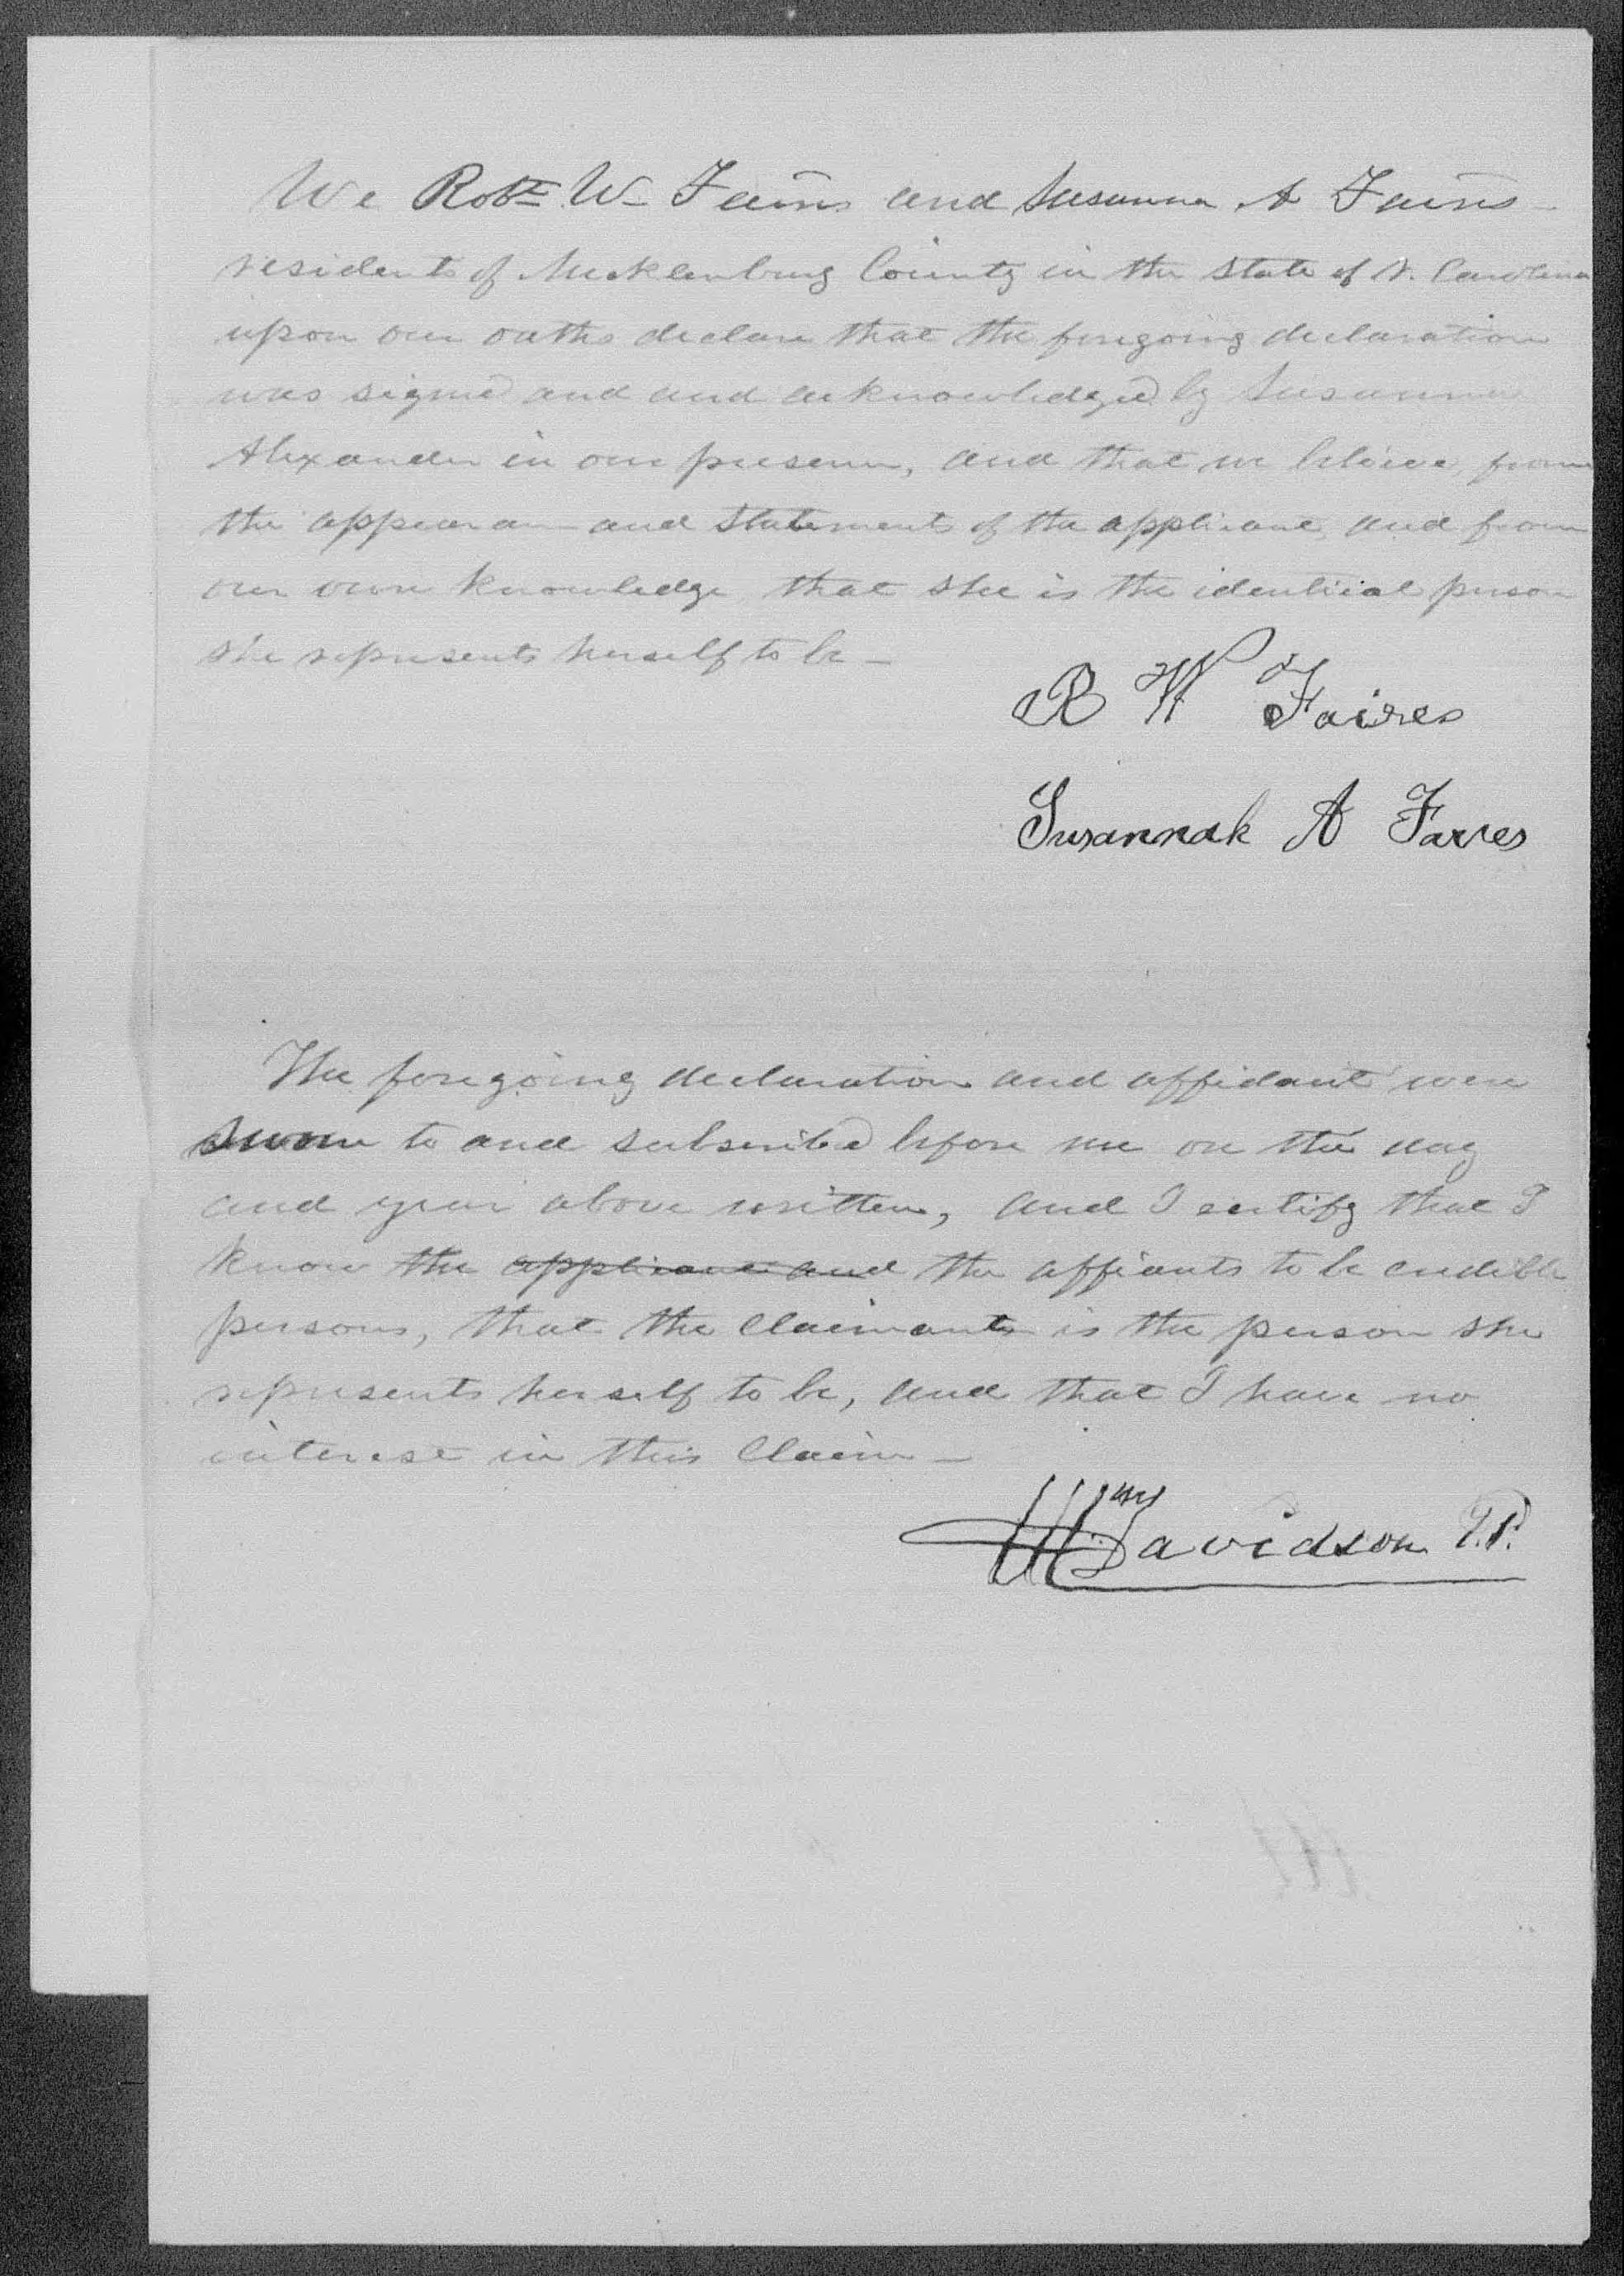 We Robt W. Faires and Susanna A Faires
residents of Mecklenburg County in the State of N. Carolina
upon our oaths declare that the foregoing declaration
was signed and and acknowledged by Susanna
Alexander in our presence, and that we believe, from
the appearance and statements of the applicant, and from
our own knowledge that she is the identical person
she represents herself to be —
R W Faires
Susannah A Farres
The foregoing declaration and affidavit were
sworn to and subscribed before me on the day
and year above written, and I certify that I
know the applicant and the affiants to be credible
persons, that the claimant is the person she
represents herself to be, and that I have no
interest in this claim —
Davidson J.P.